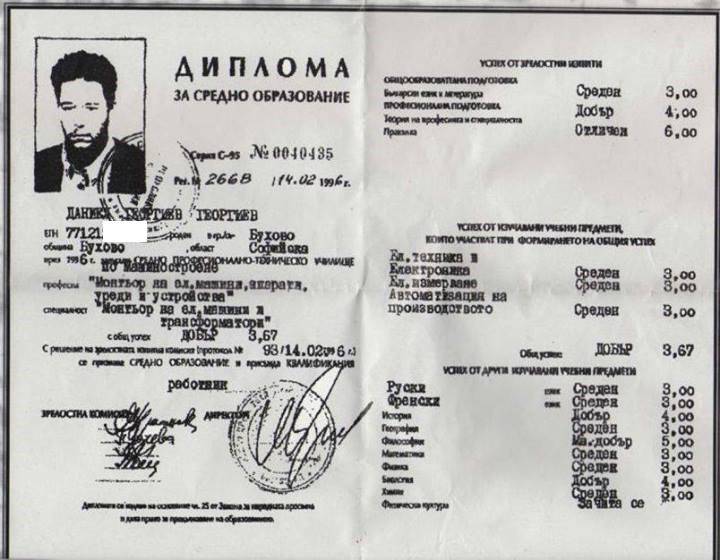 ДИПЛОМА
ЗА СРЕДНО ОБРАЗОВАНИЕ
Серия С-95 № 0040435
Рег. № 2668 / 14.02 1996 г.
ДАНИЕЛ ГЕОРГИЕВ ГЕОРГИЕВ
ЕГН 77121 роден в гр./с. Бухово
община Бухово, област Софийска
през 1996 г. СРЕДНО ПРОФЕСИОНАЛНО-ТЕХНИЧЕСКО УЧИЛИЩЕ
по машиностроене
професия "Монтьор на ел.машини,апарати,
уреди и устройства"
специалност "Монтьор на ел.машини и
трансформатори"
с общ успех ДОБЪР 3,67
С решение на зрелостната изпитна комисия (протокол № 93/14.02 1996 г.)
се признава СРЕДНО ОБРАЗОВАНИЕ и присъжда КВАЛИФИКАЦИЯ
работник
ЗРЕЛОСТНА КОМИСИЯ ДИРЕКТОР
Дипломата се издава на основание чл. 25 от Закона за народната просвета
и дава право за продължаване на образованието.
УСПЕХ ОТ ЗРЕЛОСТНИ ИЗПИТИ
ОБЩООБРАЗОВАТЕЛНА ПОДГОТОВКА
Български език и литература Среден 3,00
ПРОФЕСИОНАЛНА ПОДГОТОВКА
Теория на професията и специалността Добър 4,00
Практика Отличен 6,00
УСПЕХ ОТ ИЗУЧАВАНИ УЧЕБНИ ПРЕДМЕТИ,
КОИТО УЧАСТВАТ ПРИ ФОРМИРАНЕТО НА ОБЩИЯ УСПЕХ
Ел.техника и
Електроника Среден 3,00
Ел.измерване Среден 3,00
Автоматизация на
производството Среден 3,00
Общ успех: ДОБЪР 3,67
УСПЕХ ОТ ДРУГИ ИЗУЧАВАНИ УЧЕБНИ ПРЕДМЕТИ
Руски език Среден 3,00
Френски език Среден 3,00
История Добър 4,00
География Среден 3,00
Философия Мн.добър 5,00
Математика Среден 3,00
Физика Среден 3,00
Биология Добър 4,00
Химия Среден 3,00
Физическа култура Зачита се